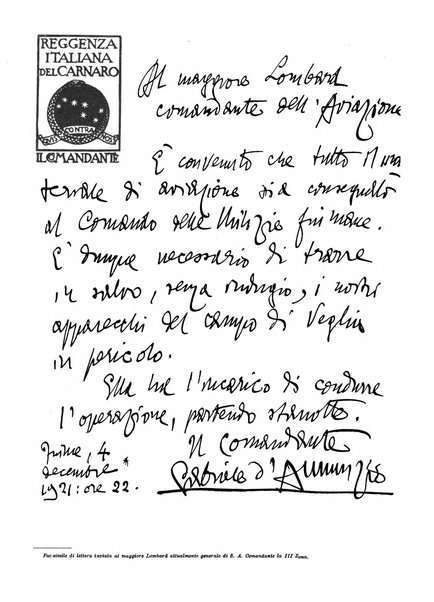 REGGENZA
ITALIANA
DEL CARNARO
QUIS CONTRA NOS
IL COMANDANTE
Al maggiore Lombard
comandante dell'Aviazione
È convenuto che tutto il ma
teriale di aviazione sia consegnato
al Comando delle Milizie fiumane.
È dunque necessario di trarre
in salvo, senza indugio, i nostri
apparecchi del campo di Veglia
in pericolo.
Ella ha l'incarico di condurre
l'operazione, partendo stanotte.
Il Comandante
Gabriele d'Annunzio
Fiume, 4
decembre
1921: ore 22.
Fac-simile di lettera inviata al maggiore Lombard attualmente generale di S. A. Comandante la III Zona.